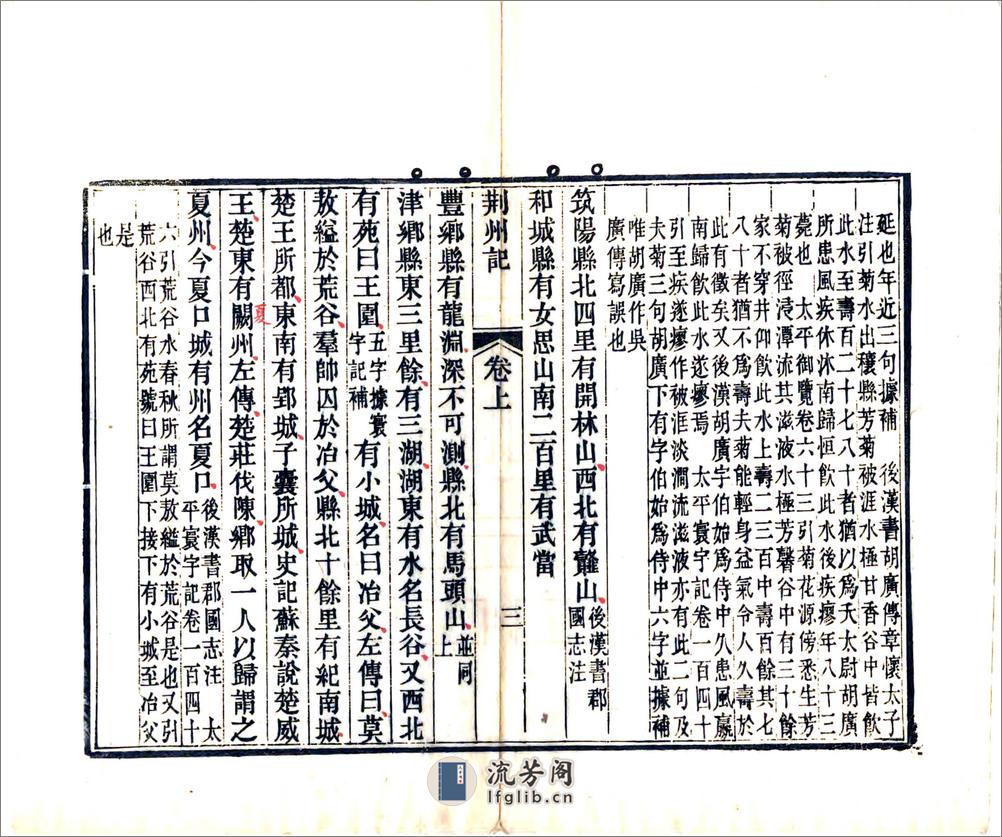 延也年近三句據補　後漢書胡廣傳章懷太子
注引菊水出穰縣芳菊被涯水極甘香谷中皆飲
此水至壽百二十七八十者猶以爲夭太尉胡廣
所患風疾休沐南歸恒飲此水後疾瘳年八十三
薨也　太平御覽卷六十三引菊花源傍悉生芳
菊被徑浸潭流其滋液水極芳馨谷中有三十餘
家不穿井仰飲此水上壽二三百中壽百餘其七
八十者猶不爲壽夫菊能輕身益氣令人久壽於
此有徵矣又後漢胡廣字伯始爲侍中久患風羸
南歸飲此水遂瘳焉　太平寰宇記卷一百四十
引至疾遂瘳作被涯淡澗流滋液亦有此二句及
夫菊三句胡廣下有字伯始爲侍中六字並據補
唯胡廣作吳
廣傳寫誤也
筑陽縣北四里有開林山西北有鼇山後漢書郡國志注
和城縣有女思山南二百里有武當
荆州記　卷上　三
豐鄉縣有龍淵深不可測縣北有馬頭山並同上
津鄉縣東三里餘有三湖湖東有水名長谷又西北
有苑曰王圍五字據寰宇記補有小城名曰冶父左傳曰莫
敖縊於荒谷羣帥囚於冶父縣北十餘里有紀南城
楚王所都東南有郢城子囊所城史記蘇秦說楚威
王楚東有關州左傳楚莊伐陳鄉取一人以歸謂之
夏
夏州今夏口城有州名夏口後漢書郡國志注　太平寰宇記卷一百四十
六引荒谷水春秋所謂莫敖縊於荒谷是也又引
荒谷西北有苑號曰王圍下接下有小城至冶父
是
也
流芳阁
lfglib.cn